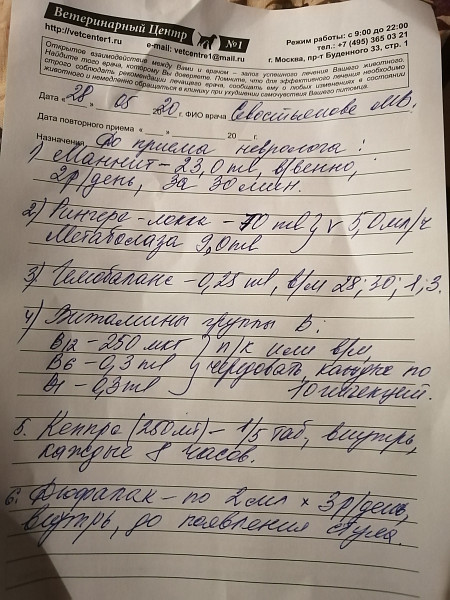 Ветеринарный Центр №1
http://vetcentr1.ru e-mail: vetcentre1@mail.ru
Режим работы: с 9:00 до 22:00
тел.: +7 (495) 365 03 21
г. Москва, пр-т Буденного 33, стр. 1
Открытое взаимодействие между Вами и врачом – залог успешного лечения Вашего животного.
Найдите того врача, которому Вы доверяете. Помните, что для эффективного лечения необходимо
строго соблюдать рекомендации лечащего врача, сообщать ему о любых изменениях в состоянии
животного и немедленно обращаться в клинику при ухудшении самочувствия Вашего питомца.
Дата «28» 05 2020 г. ФИО врача Севостьянова МВ.
Дата повторного приема « » 20 г.
Назначения До приема невролога:
1) Маннит – 23,0 мл, в/венно,
2р/день, за 30 мин.
2) Рингера-локка – 70 мл } v 5,0 мл/ч
Метаболаза 9,0 мл
3) Гемобаланс – 0,25 мл, в/м 28; 30; 1; 3.
4) Витамины группы В:
В12 – 250 мкг } п/к или в/м,
В6 – 0,3 мл чередовать, каждые по
В1 – 0,3 мл 10 инъекций.
5. Кеппра (250мг) – 1/5 таб, внутрь,
каждые 8 часов.
6. Дюфалак – по 2 мл × 3р/день,
внутрь, до появления стула.